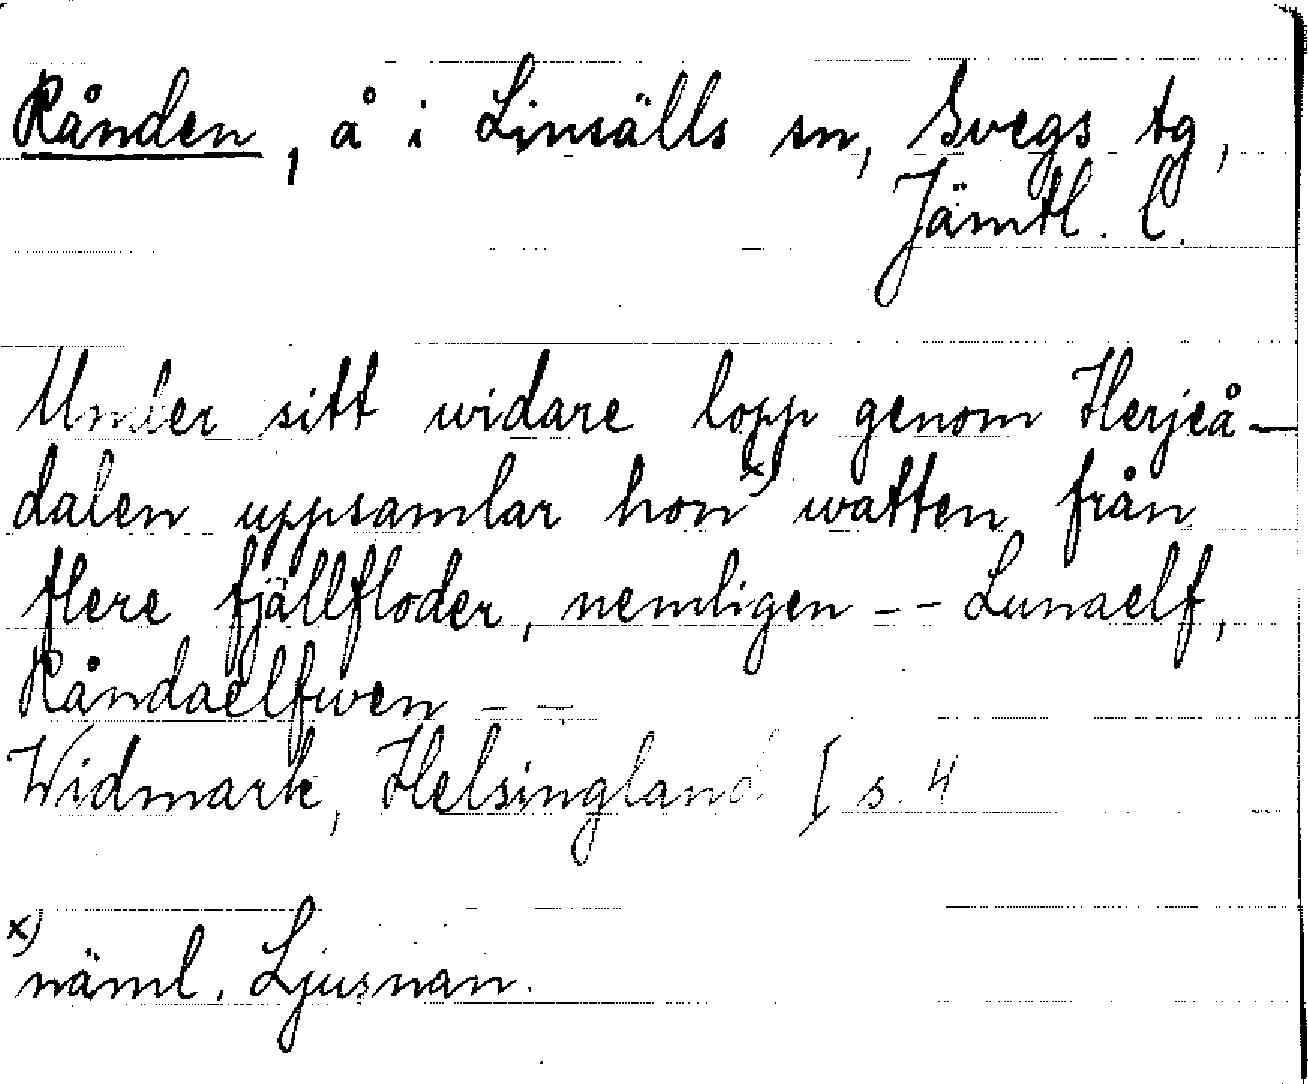 Rånden, å i Linsälls sn, Svegs tg,
Jämtl. l.
Under sitt widare lopp genom Herjeå-
dalen uppsamlar hon x) watten från
flere fjällfloder, nemligen -- Lunaelf,
Råndaelfwen --
Widmark, Helsingland I s. 4
x)
näml. Ljusnan.